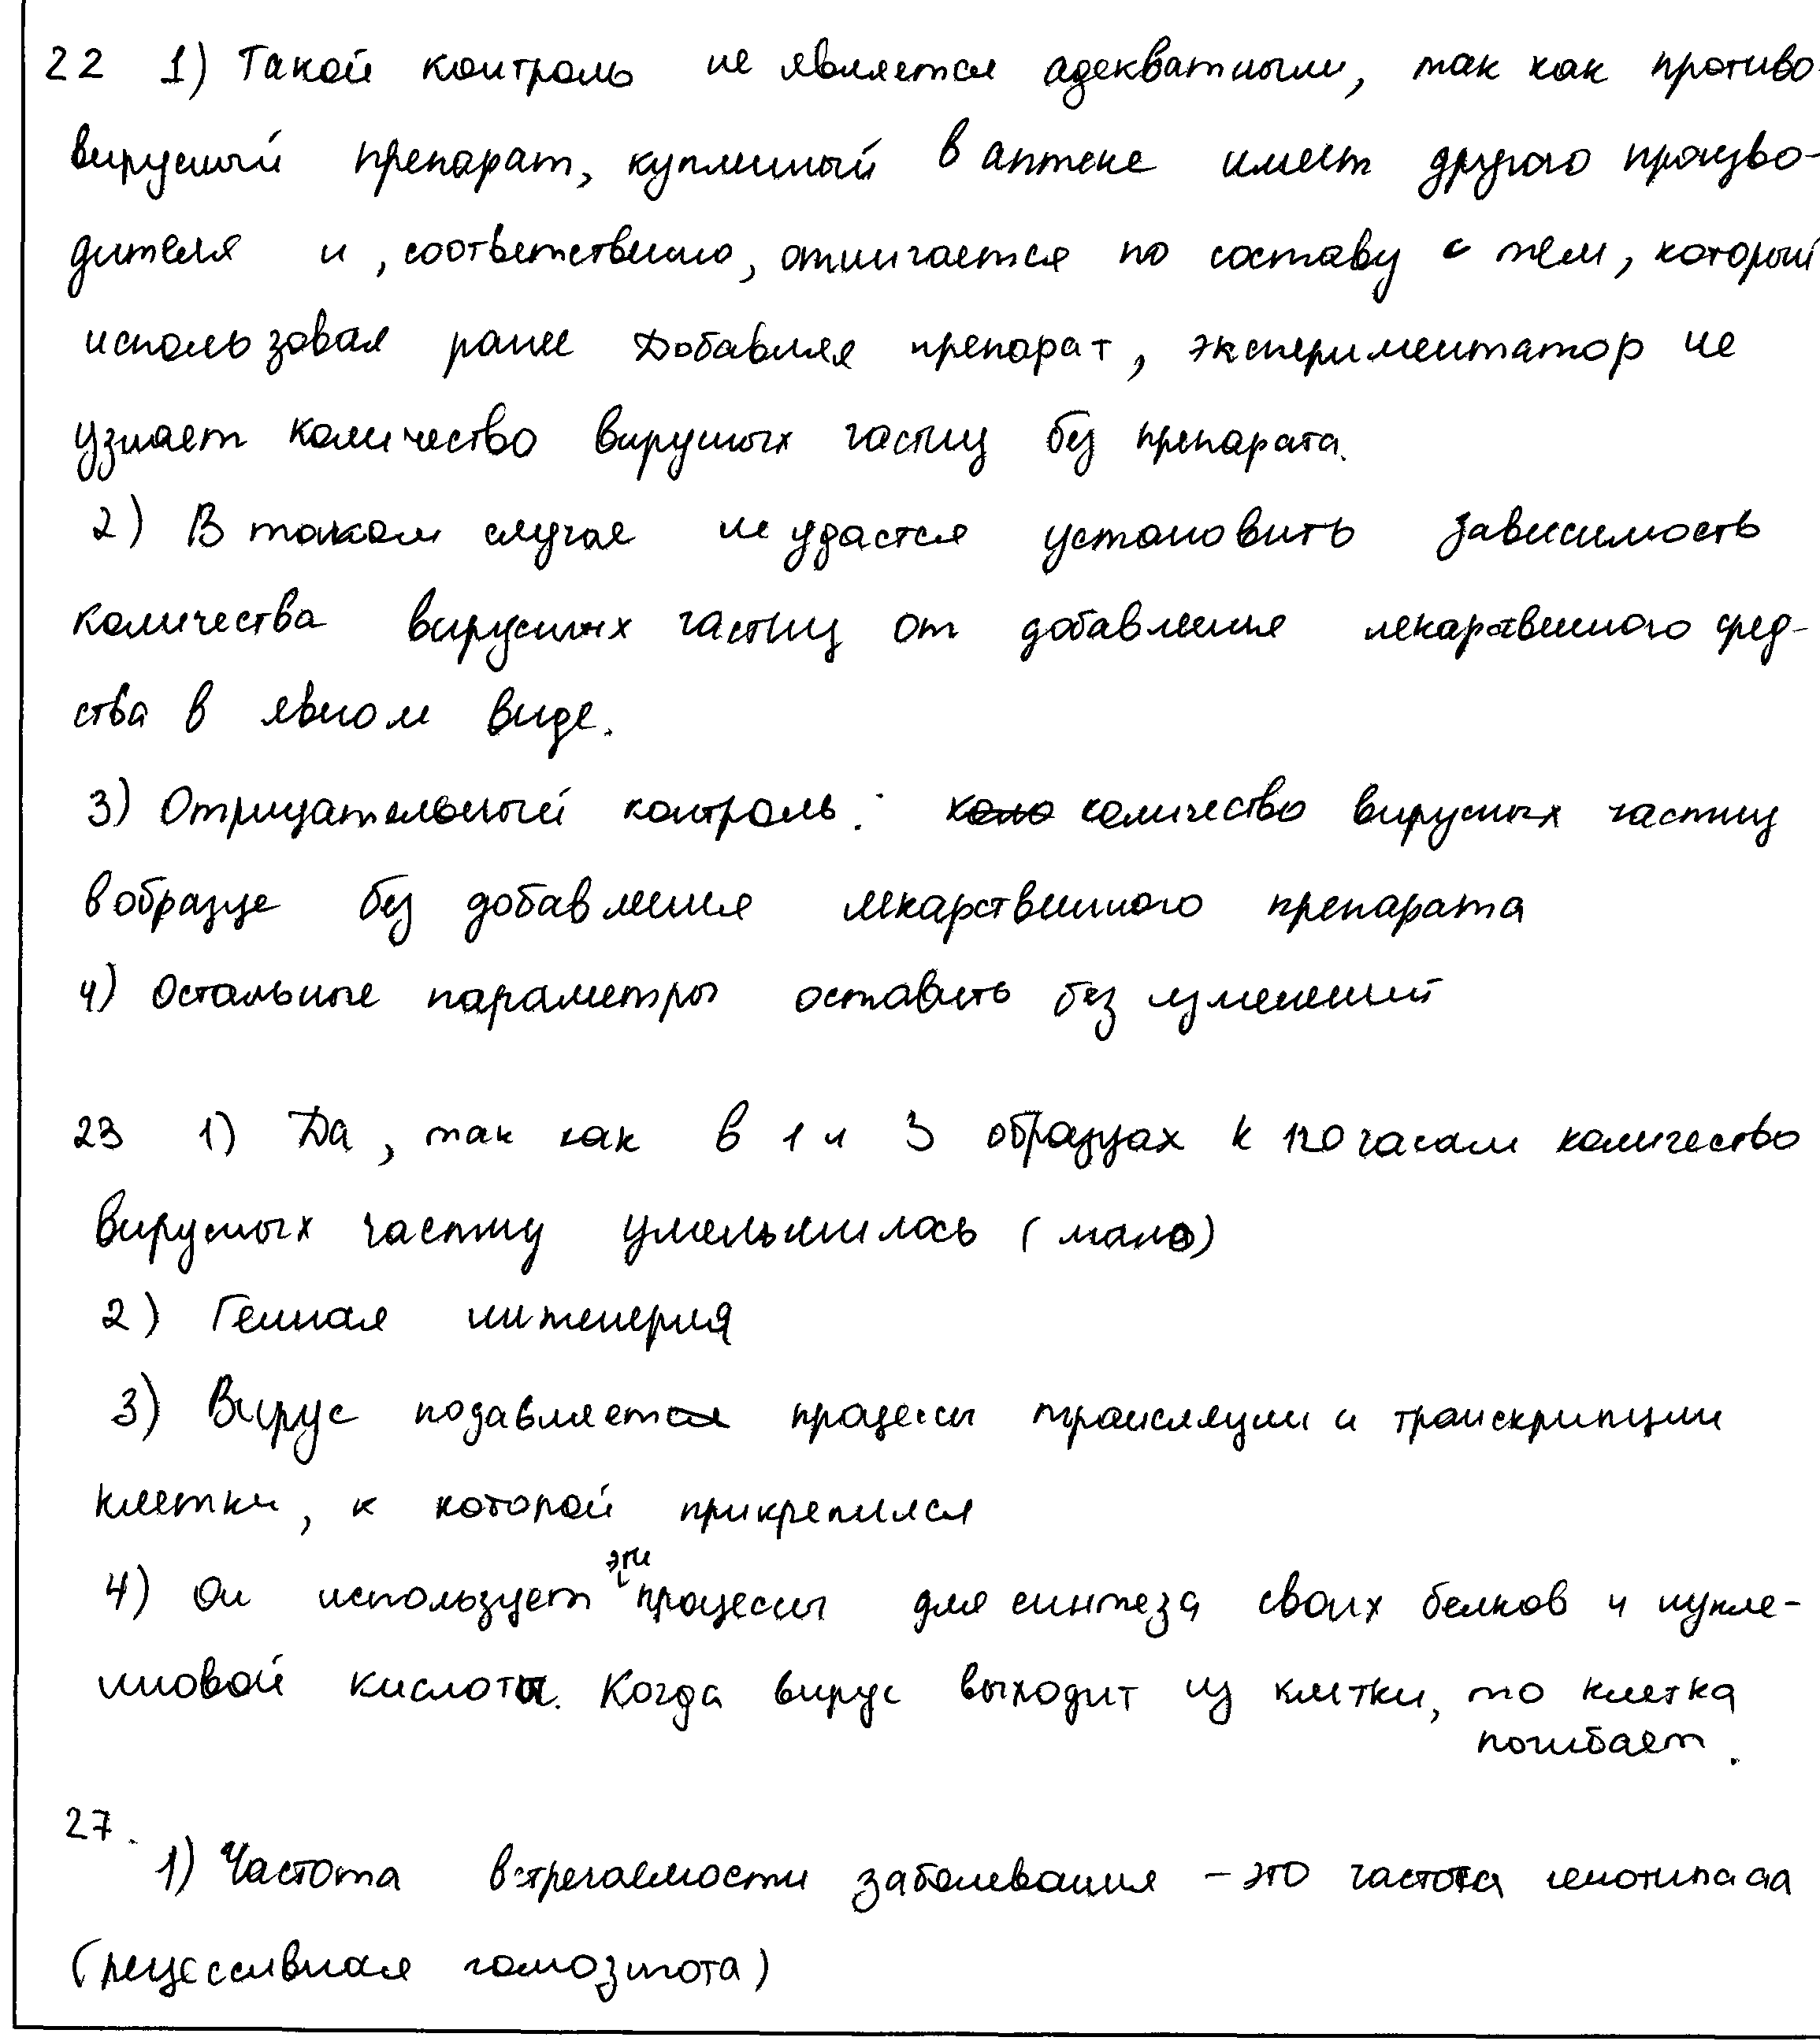 22 1) Такой контроль не является адекватным, так как противо-
вирусный препарат, купленный в аптеке имеет другого произво-
дителя и, соответственно, отличается по составу с тем, который
использовал ранее Добавляя препарат, экспериментатор не
узнает количество вирусных частиц без препарата.
2) В таком случае не удастся установить зависимость
количества вирусных частиц от добавления лекарственного сред-
ства в явном виде.
3) Отрицательный контроль: коло количество вирусных частиц
в образце без добавления лекарственного препарата
4) Остальные параметры оставить без изменений
23 1) Да, так как в 1 и 3 образцах к 120 часам количество
вирусных частиц уменьшилось (мало)
2) Генная инженерия
3) Вирус подавляет процессы трансляции и транскрипции
клетки, к которой прикрепился
4) Он использует эти процессы для синтеза своих белков и нукле-
иновой кислоты. Когда вирус выходит из клетки, то клетка
погибает.
27.
1) Частота встречаемости заболевания - это частота генотипа аа
(рецессивная гомозигота)